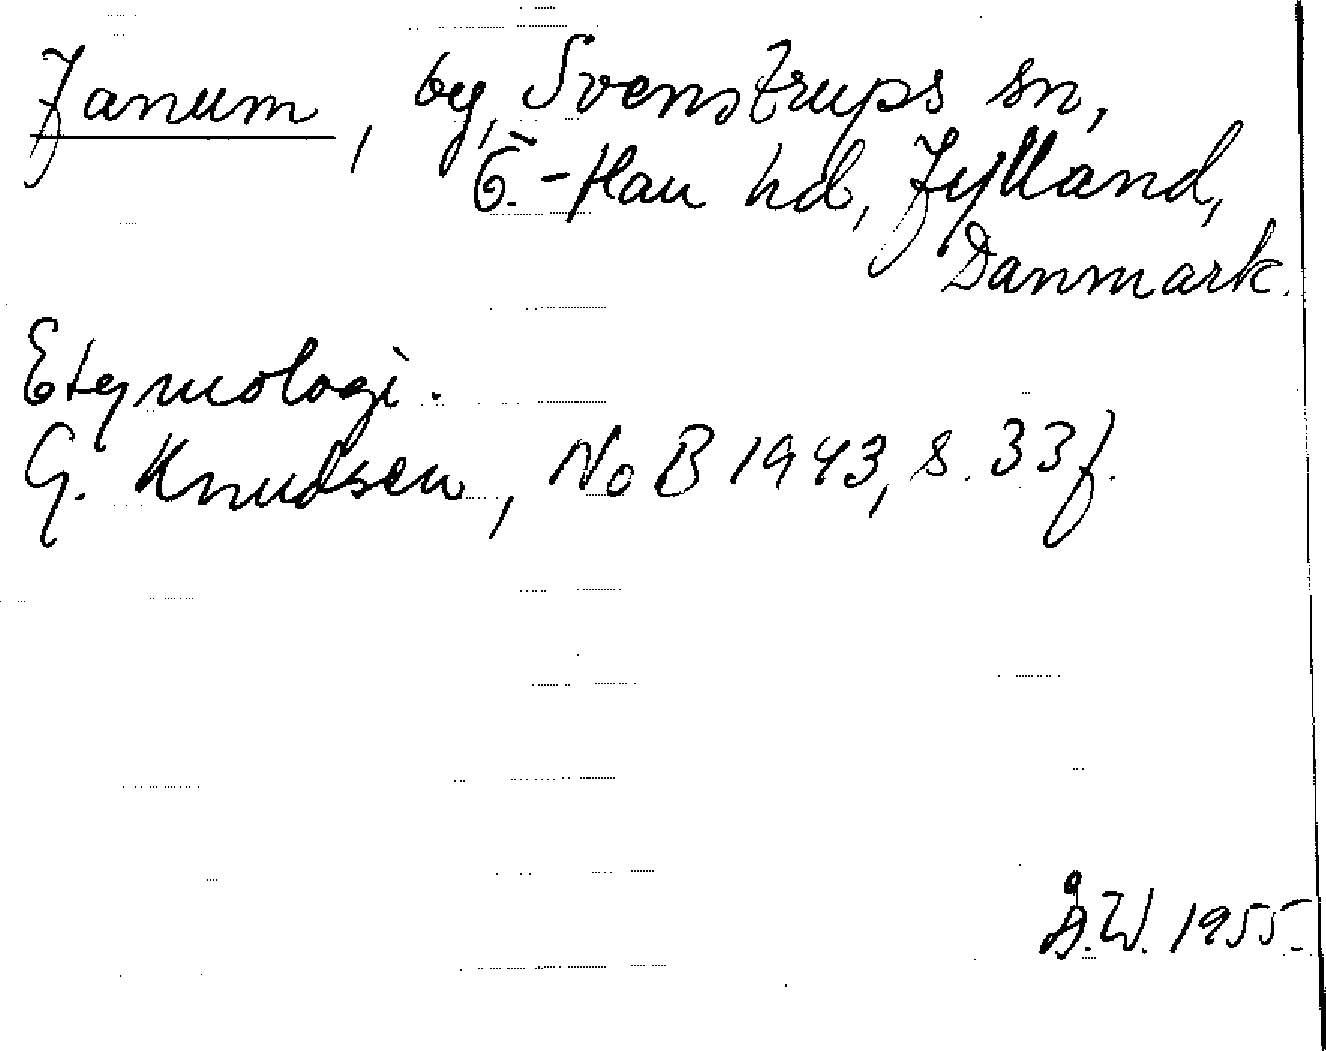 Janum, by, Svenstrups sn,
Ö.-Han hd, Jylland,
Danmark.
Etymologi.
G. Knudsen, NoB 1943, s. 33f.
Å.W. 1955.